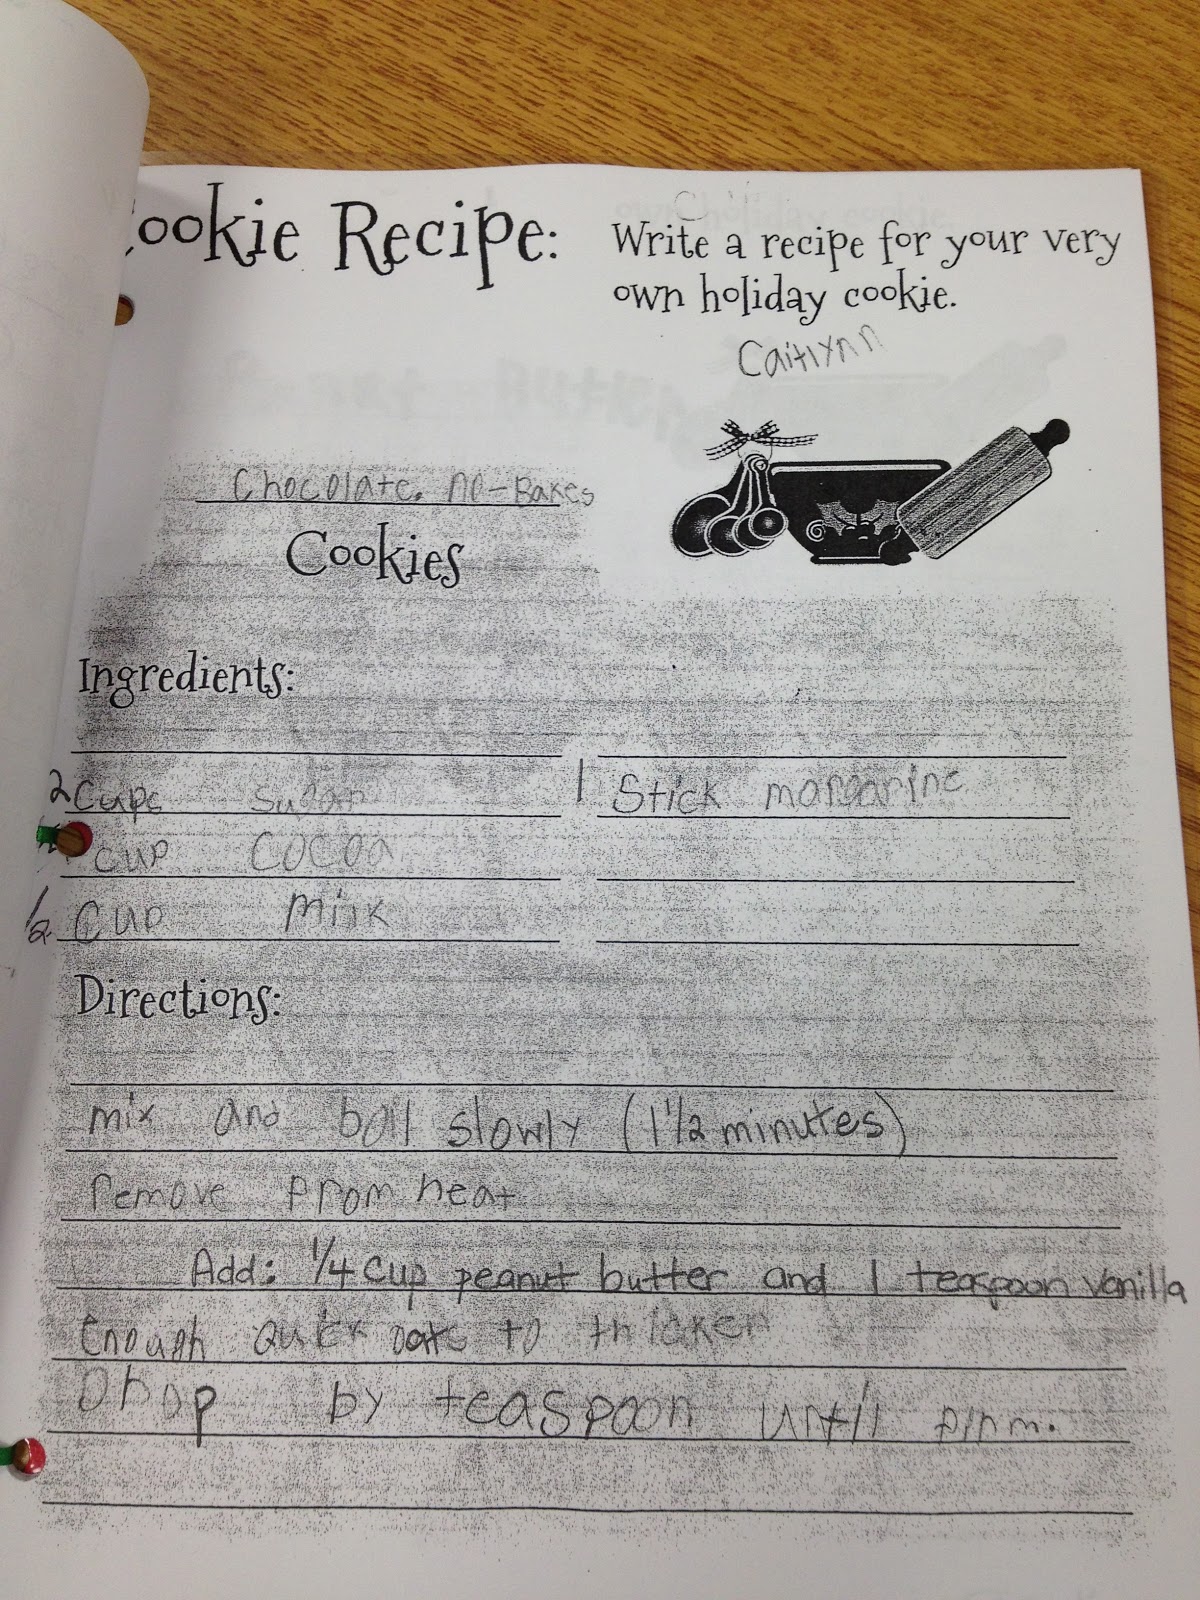 ookie Recipe:
Write a recipe for your very
own holiday cookie.
Caitlynn
Chocolate. no-Bakes
Cookies
Ingredients:
2 Cups Sugar
1 Stick margarine
cup Cocoa
1/2 Cup milk
Directions:
mix and boil slowly (1 1/2 minutes)
remove from heat
Add: 1/4 cup peanut butter and 1 teaspoon vanilla
Enough quick oats to thicken
Drop by teaspoon until firm.